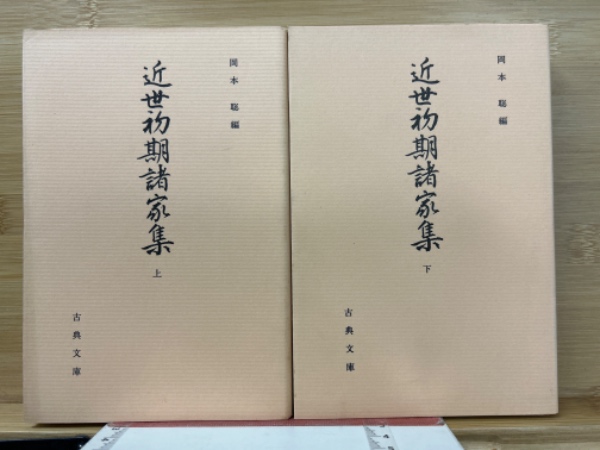 岡本聡編
近世初期諸家集
上
古典文庫
岡本聡編
近世初期諸家集
下
古典文庫